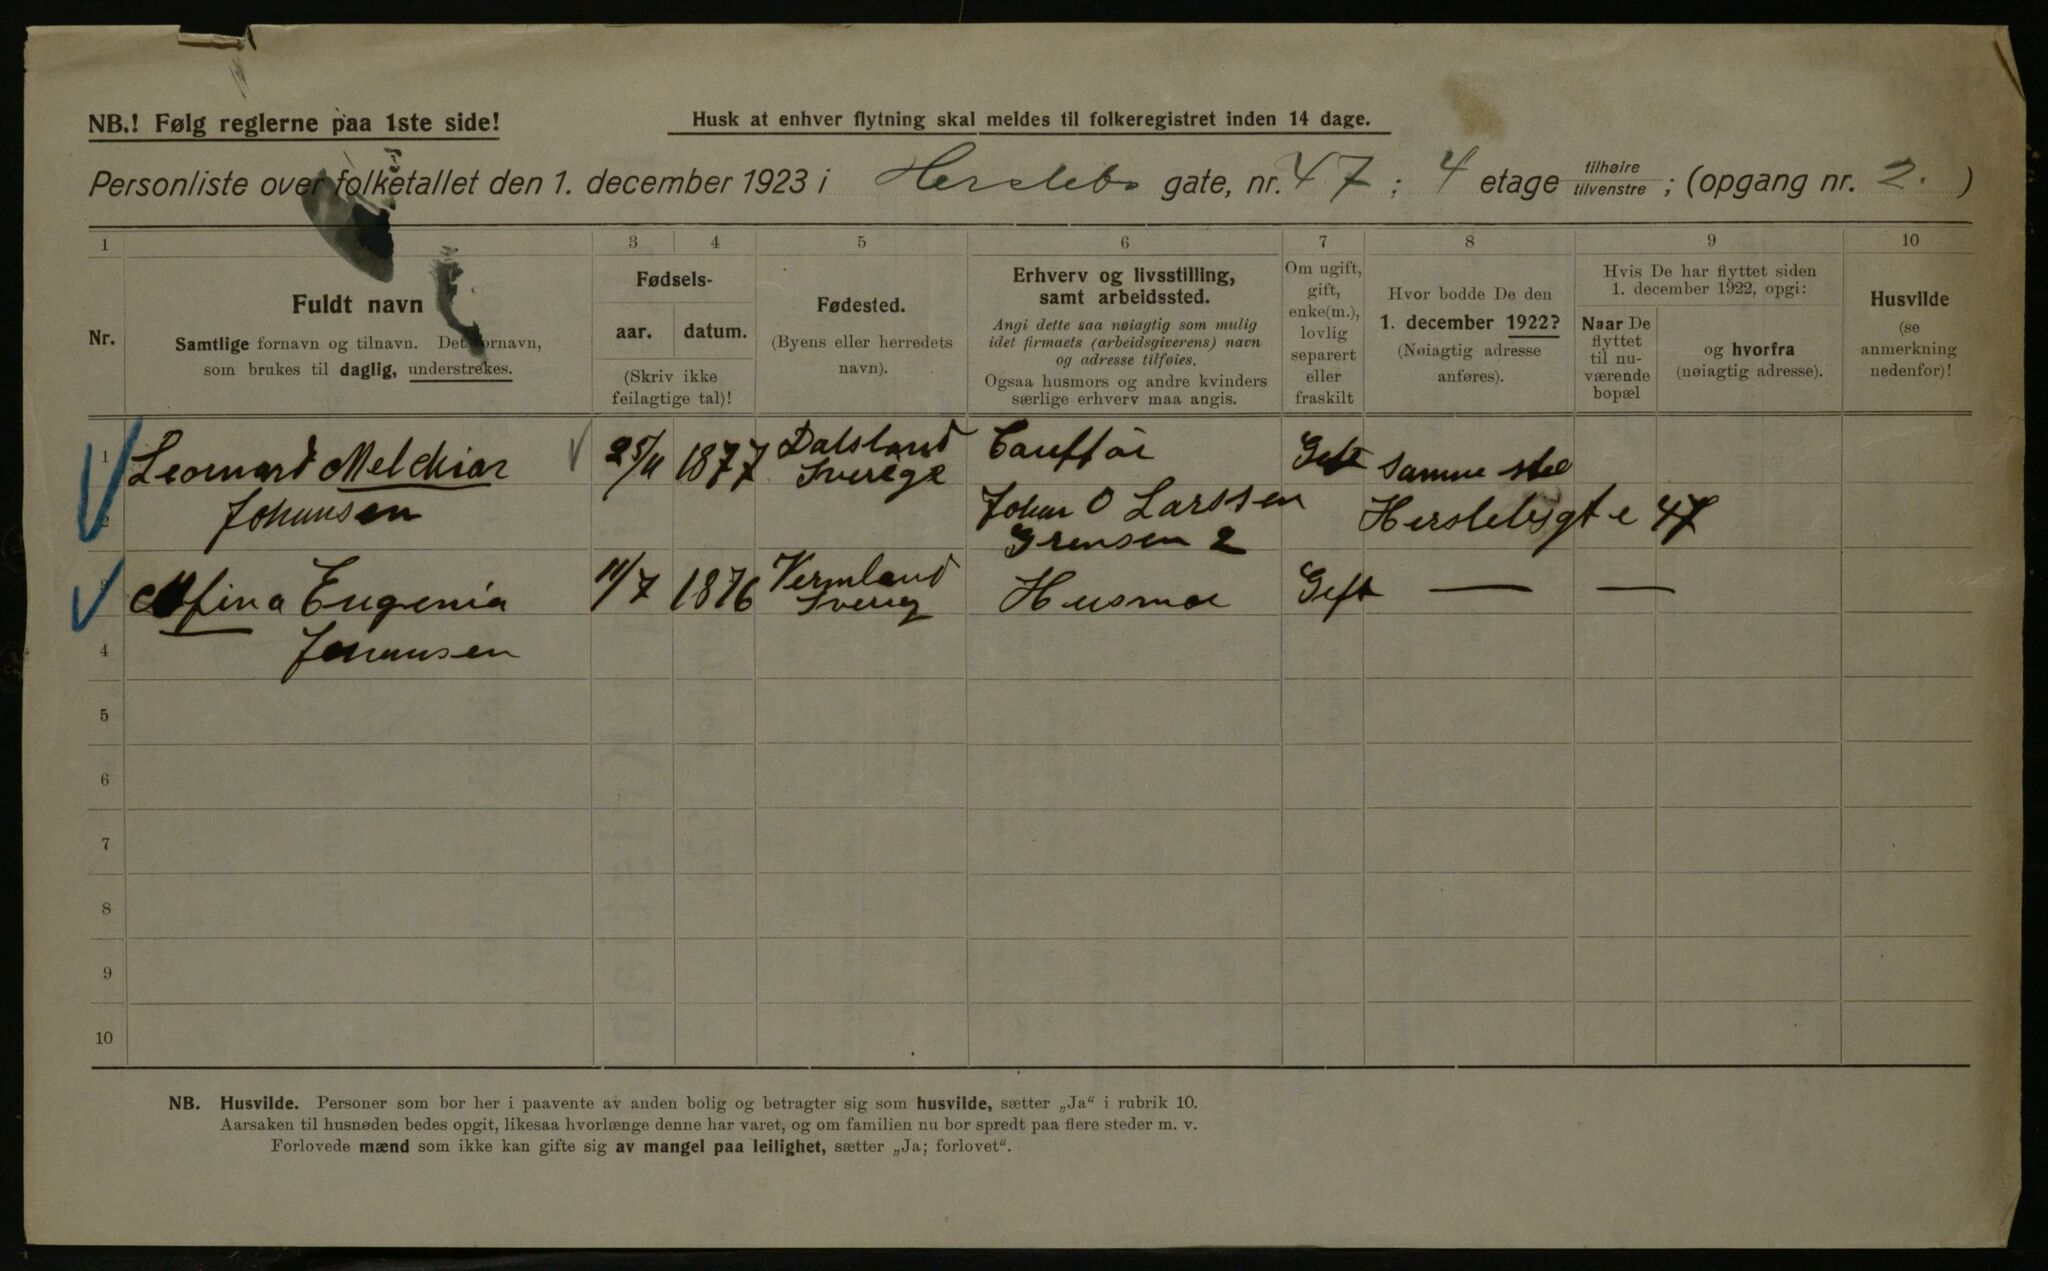 NB.! Følg reglerne paa 1ste side!
Husk at enhver flytning skal meldes til folkeregistret inden 14 dage.
Personliste over folketallet den 1. december 1923 i Herslebs gate, nr. 47; 4 etage tilhøire tilvenstre; (opgang nr. 2.)
1 3 4 5 6 7 8 9 10
Nr.
Fuldt navn
Samtlige fornavn og tilnavn. Det fornavn,
som brukes til daglig, understrekes.
Fødsels-
aar. datum.
(Skriv ikke
feilagtige tal)!
Fødested.
(Byens eller herredets
navn).
Erhverv og livsstilling,
samt arbeidssted.
Angi dette saa nøiagtig som mulig
idet firmaets (arbeidsgiverens) navn
og adresse tilføies.
Ogsaa husmors og andre kvinders
særlige erhverv maa angis.
Om ugift,
gift,
enke(m.),
lovlig
separert
eller
fraskilt
Hvor bodde De den
1. december 1922?
(Nøiagtig adresse
anføres).
Hvis De har flyttet siden
1. december 1922, opgi:
Naar De
flyttet
til nu-
værende
bopæl
og hvorfra
(nøiagtig adresse).
Husvilde
(se
anmerkning
nedenfor)!
1 Leornard Melchior 25/11 1877 Dalsland Sverige Gift Samme sted
2 Johansen Johan O Larssen Herslebsgte 47
Grensen 2
3 Eugenia 11/7 1876 Vermland Husmor Gift — —
4 Johansen
5
6
7
8
9
10
NB. Husvilde. Personer som bor her i paavente av anden bolig og betragter sig som husvilde, sætter „Ja" i rubrik 10.
Aarsaken til husnøden bedes opgit, likesaa hvorlænge denne har varet, og om familien nu bor spredt paa flere steder m. v.
Forlovede mænd som ikke kan gifte sig av mangel paa leilighet, sætter „Ja; forlovet".